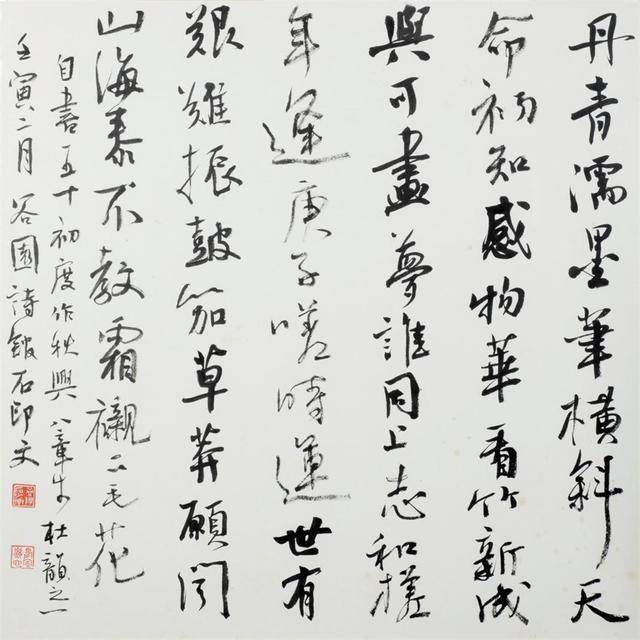 丹青濡墨筆橫斜天
命初知感物華看竹新成
與可畫夢誰同上志和槎
年逢庚子嗟時運世有
艱難振鼓笳草莽願聞
山海泰不教霜襯二毛花
自書五十初度作秋興八章步杜韻之一
壬寅二月谷園詩石印文